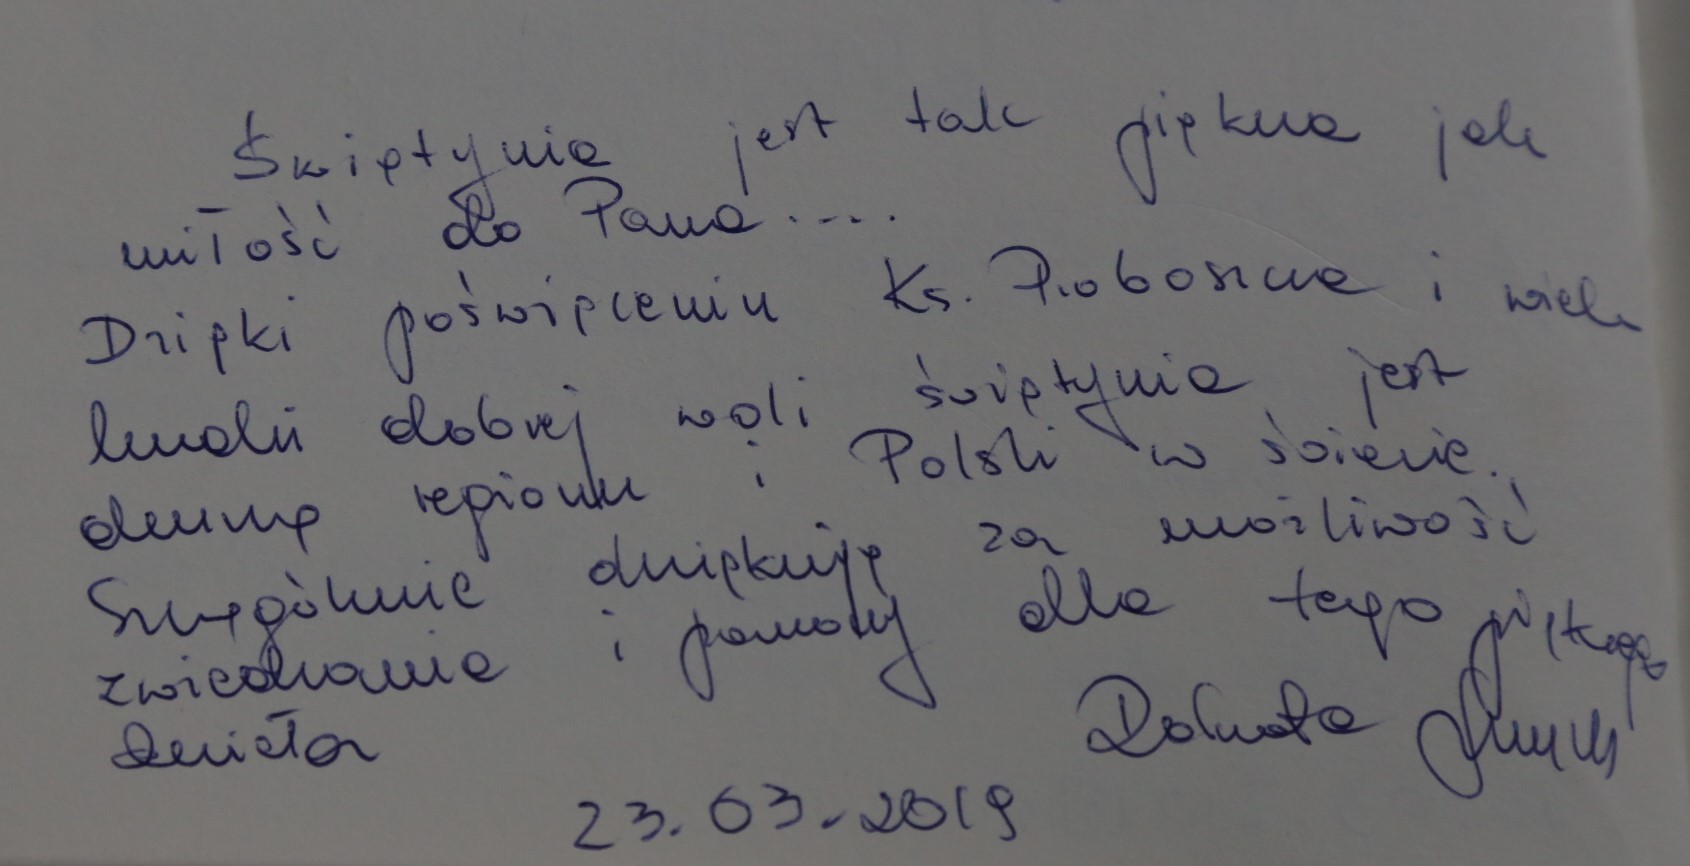 Świątynia jest tak piękna jak
miłość do Pana....
Dzięki poświęceniu Ks. Proboszcza i wielu
ludzi dobrej woli świątynia jest
dumą regionu i Polski w świecie.
Szczególnie dziękuję za możliwość
zwiedzania i pomocy dla tego pięknego
dzieła
23.03.2019